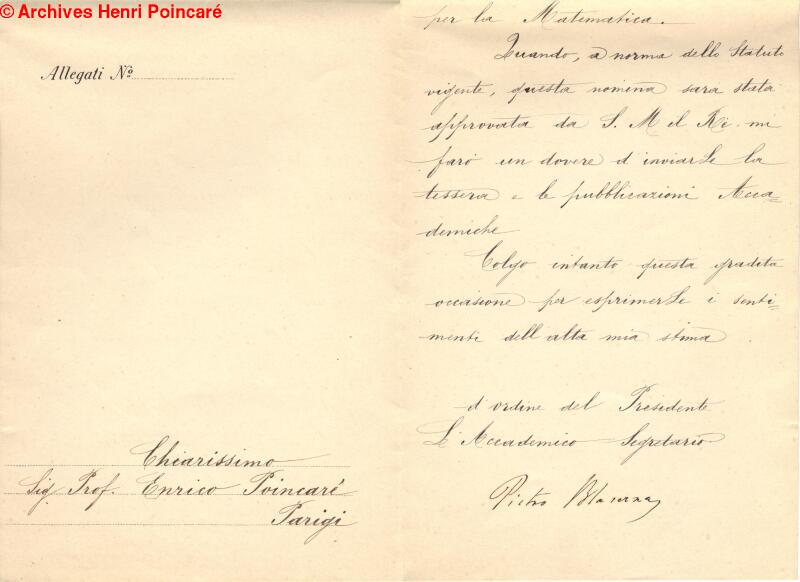 © Archives Henri Poincaré
Allegati Nº
Chiarissimo
Sig. Prof. Enrico Poincaré
Parigi
per la Matematica.
Quando, a norma dello Statuto
vigente, questa nomina sara stata
approvata da S. M il Re. mi
farò un dovere d'inviarLe la
tessera e le pubblicazioni Acca=
demiche
Colgo intanto questa gradita
occasione per esprimerLe i senti=
menti dell'alta mia stima
d'ordine del Presidente
L'Accademico Segretario
Pietro Blaserna